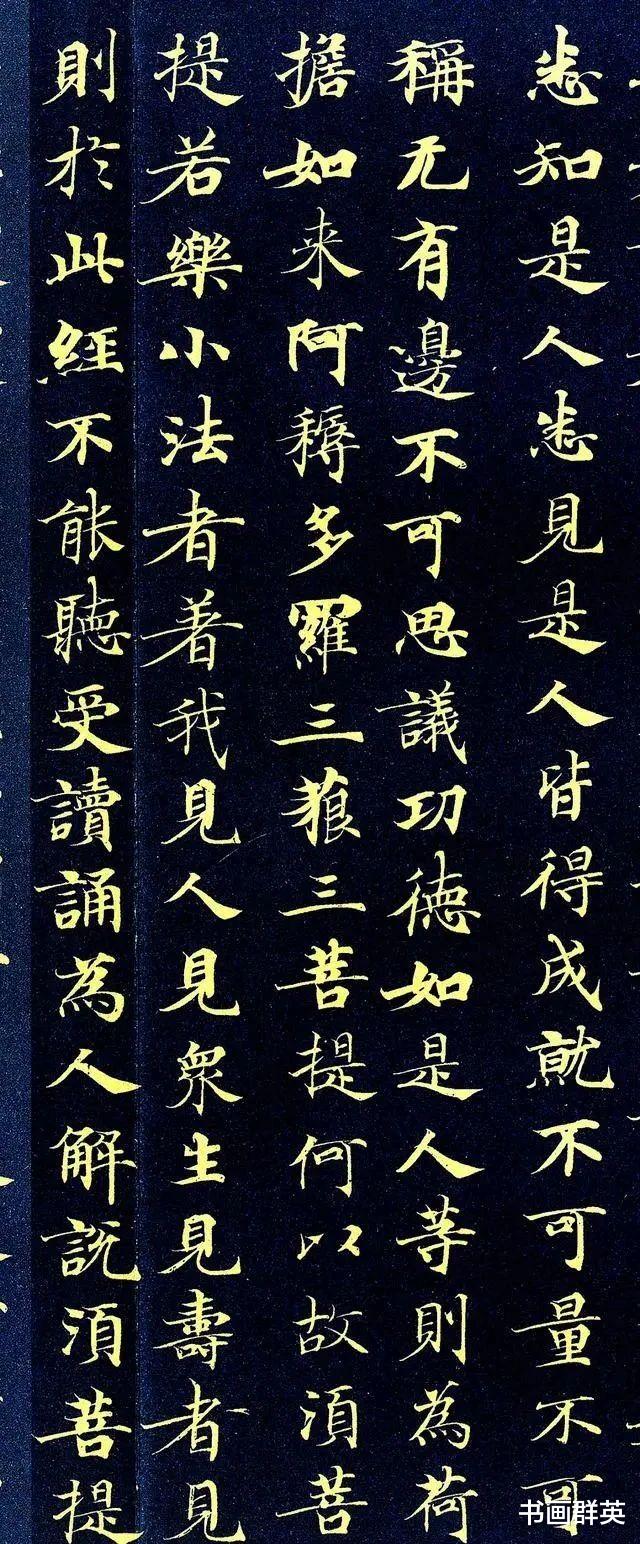 悉知是人悉見是人皆得成就不可量不可
稱无有邊不可思議功德如是人等則為荷
擔如来阿耨多羅三藐三菩提何以故須菩
提若樂小法者著我見人見眾生見壽者見
則於此經不能聽受讀誦為人解説須菩提
书画群英